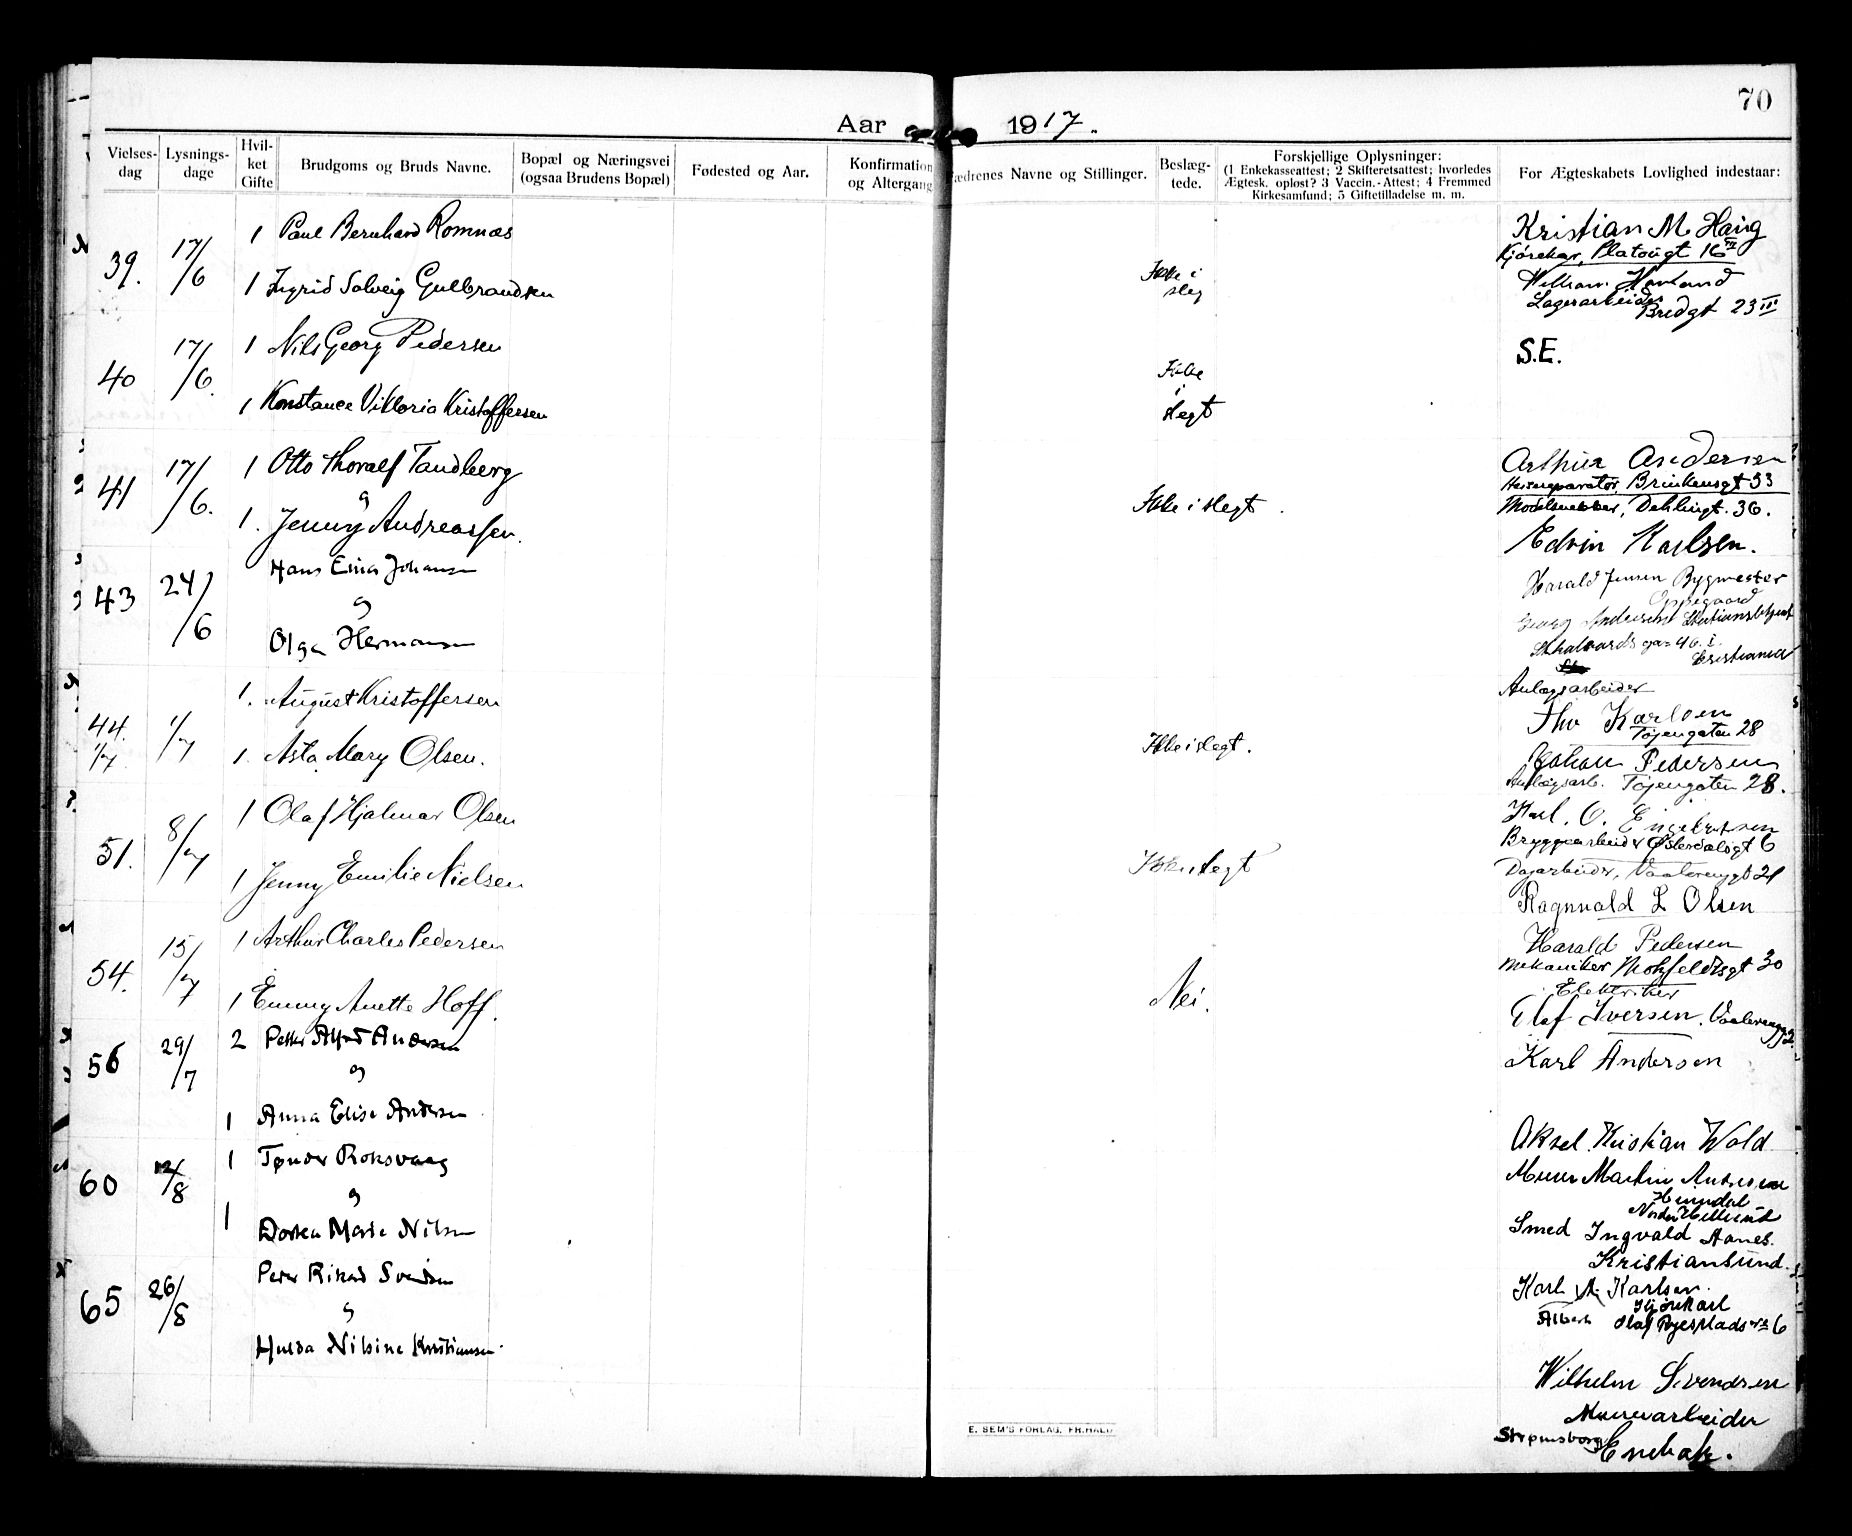 70
Aar 1917.
Vielses-dag
Lysnings-dage
Hvil-ket Gifte
Brudgoms og Bruds Navne.
Bopæl og Næringsvei (ogsaa Brudens Bopæl)
Fødested og Aar.
Konfirmation og Altergang
ædrenes Navne og Stillinger.
Beslæg-tede.
Forskjellige Oplysninger:
(1 Enkekasseattest; 2 Skifteretsattest; hvorledes
Ægtesk. opløst? 3 Vaccin.-Attest; 4 Fremmed
Kirkesamfund; 5 Giftetilladelse m. m.
For Ægteskabets Lovlighed indestaar:
39. 17/6 1 Paul Bernhard Romnæs
1 Ingrid Solveig Gulbrandsen
Ikke i
sleg
Kristian M. Haug
Kjørekar, Platougt 16
Havland
Lagerarbeider
Bredgt 23 III
40 17/6. 1 Nils Georg Pedersen
1 Konstance Viktoria Kristoffersen
Ikke
i
slegt
S.E.
41 17/6. 1 Otto Thoralf Tandberg
og
1. Jenny Andreassen.
Ikke i slegt.
Arthur Andersen
Brinkensgt 33
Modelsnekker, Dehlingt. 36.
Edvin Karlsen.
43 24/6 Hans Einar Johansen
og
Olga Hermansen
Harald Jensen Bygmester
Oppegaard
Georg Andersen Stationsbetjent
St.halvards gae 46. I.
Kristiania
44. 1/7 1/7 1. August Kristoffersen
1. Asta Mary Olsen.
Ikke i slegt.
Anlægsarbeider
Thv Karlsen
Tøjengaten 28
Johan Pedersen
Anlægsarb. Tøjengaten 28.
51. 8/7 1 Olaf Hjalmar Olsen
1 Jenny Emilie Nielsen
Ikke i slegt
Karl. O. Engebretsen
Bryggearbeider Østerdalsgt 6
Dagarbeider, Vaalerenggt 21
Ragnvald L Olsen
54. 15/7 1 Arthur Charles Pedersen
1 Emmy Anette Hoff.
Nei.
Harald Pedersen
Mekaniker 30
Elektriker
Olaf Iversen, Vaalerengg 2.
56 29/7 2 Petter Alfred Andersen
og
1 Anna Elise Andersen
Karl Andersen
Aksel Kristian Wold
60 12/8 1 Tønder Roksvaag
og
1 Dorthea Marie Nilsen
Murer Martin Andersen
Heimdal
Smed Ingvald Aanes.
Kristiansund.
65 26/8 Peter Rikard Svendsen
og
Hulda Nilsine Kristiansen
Karl A. Karlsen.
Kjørekarl
Albert Olaf Ryesplads 6
Wilhelm Svendsen
Murerarbeider
Strømsborg
Enebak.
E. SEM'S FORLAG, FR.HALD